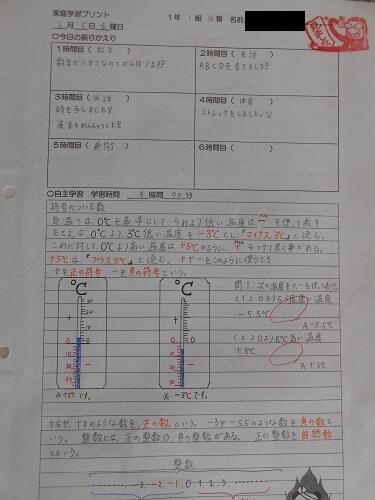 家庭学習プリント
1年 1組 番 名前
月 日 曜日
○今日の振りかえり
1時間目(数学)
数学がにがてなのでがんばります?
2時間目(英語)
ABCDを書きました?
3時間目(国語)
詩を写しました?
漢字をれんしゅうした?
4時間目(体育)
ストレッチをしました。
5時間目( )
6時間目( )
○自主学習 学習時間 時間 00分
符号のついた数
気温では、0℃を基準にして、それより低い温度は − を使って表す
たとえば、0℃より3℃低い温度を −3℃とし、「マイナス3℃」と読む。
これに対して、0℃より高い温度は、+5℃のように、+をつけて書く事がある。
+5℃は、「プラス5℃」と読む。 +や−をこのように使うとき
+を正の符号 −を負の符号という。
℃
℃
問1 次の温度を+、−を使って表せ
(1)0℃より5.5度低い温度
−5.5℃
A −5.5℃
(2)0℃より8℃高い温度
+8℃
A +8℃
※+5℃です。
※−3℃です。
+5や、+8のような数を、正の数という。−3や−5.5のような数を負の数と
いう。 整数には、正の整数、0、負の整数がある。 正の整数を自然数
ともいう。
整数
-3,-2,-1,0,1,2,3